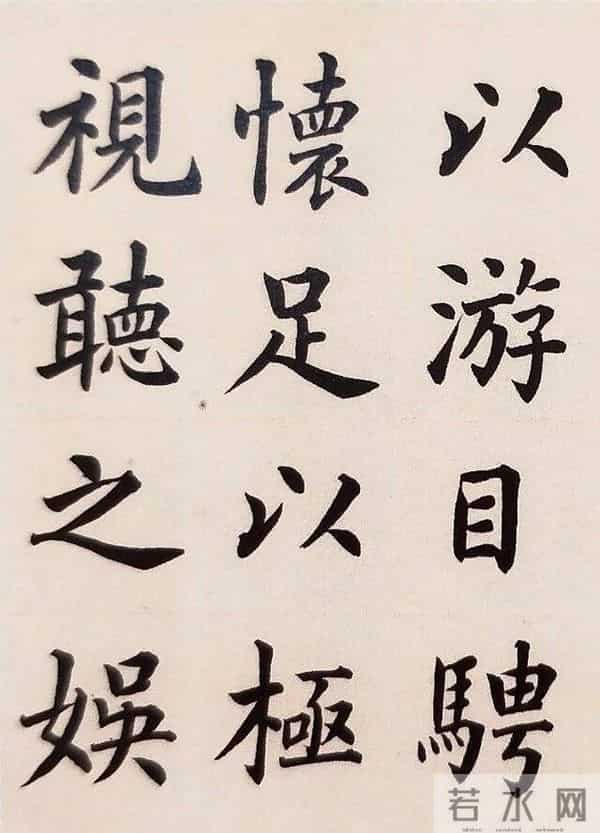 以游目騁
懷足以極
視聽之娛
若水网